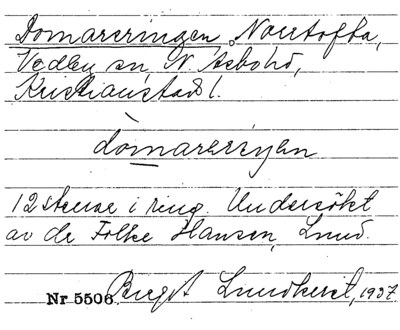 Domareringen, Norrtofta,
Vedby sn, N. Åsbohd,
Kristianstads l.
domareriŋen
12 stenar i ring. Undersökt
av dr Folke Hansen, Lund.
Nr 5506 Bengt Lundkvist, 1937